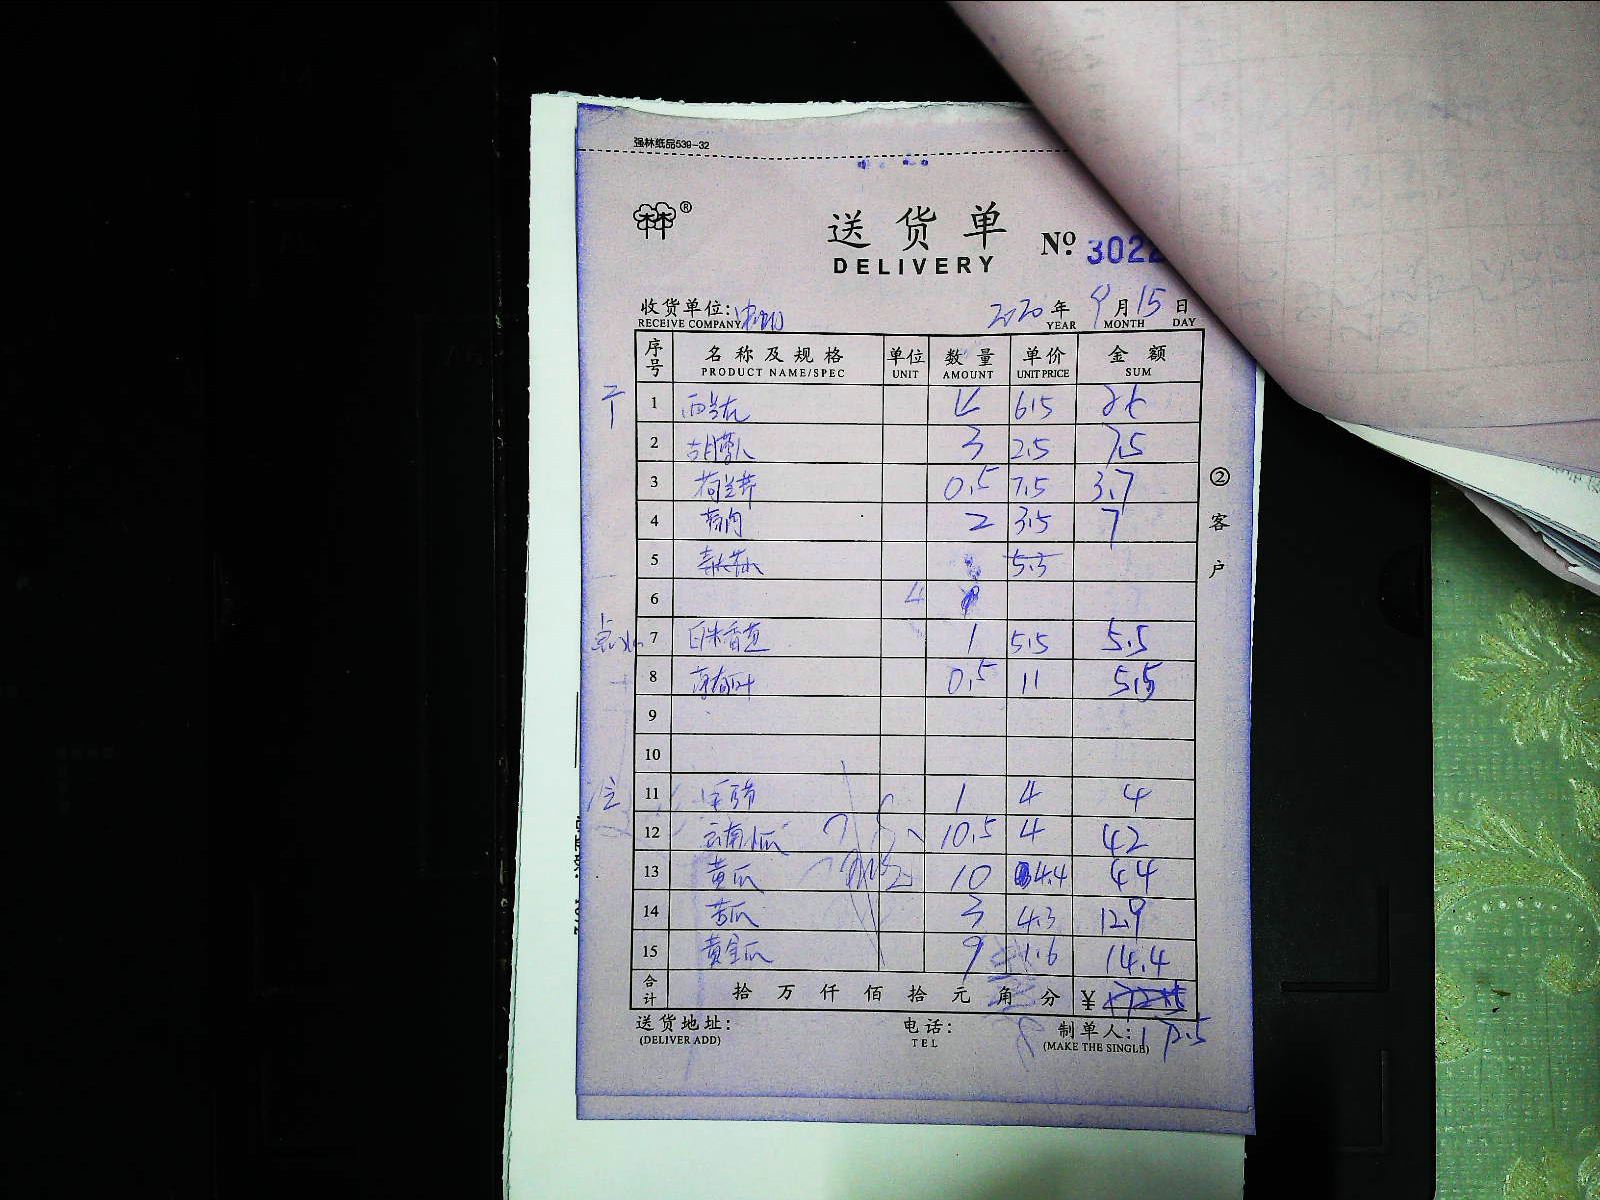 强林纸品539-32
®
送货单
DELIVERY
Nº 3022
收货单位: 2020年 9月15日
RECEIVE COMPANY YEAR MONTH DAY
序号 名称及规格 单位 数量 单价 金额
PRODUCT NAME/SPEC UNIT AMOUNT UNIT PRICE SUM
1 西兰花 6.5 26
2 胡萝卜 3 2.5 7.5
3 荷兰芹 0.5 7.5 3.7
4 2 3.5 7
5 5.5
6
点心 7 1 5.5 5.5
8 薄荷叶 0.5 11 5.5
9
10
11 1 4 4
12 云南小瓜 10.5 4 42
13 黄瓜 10 4.4 44
14 苦瓜 3 4.3 12.9
15 黄金瓜 9 1.6 14.4
合计 拾万仟佰拾元角分 ¥
送货地址: 电话: 制单人: 172.5
(DELIVER ADD) TEL (MAKE THE SINGLE)
②客户